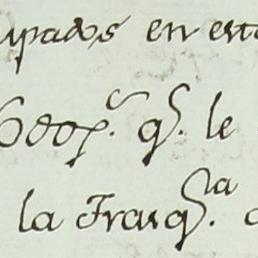 upados en esta
qͤ. le
la Franq.ª